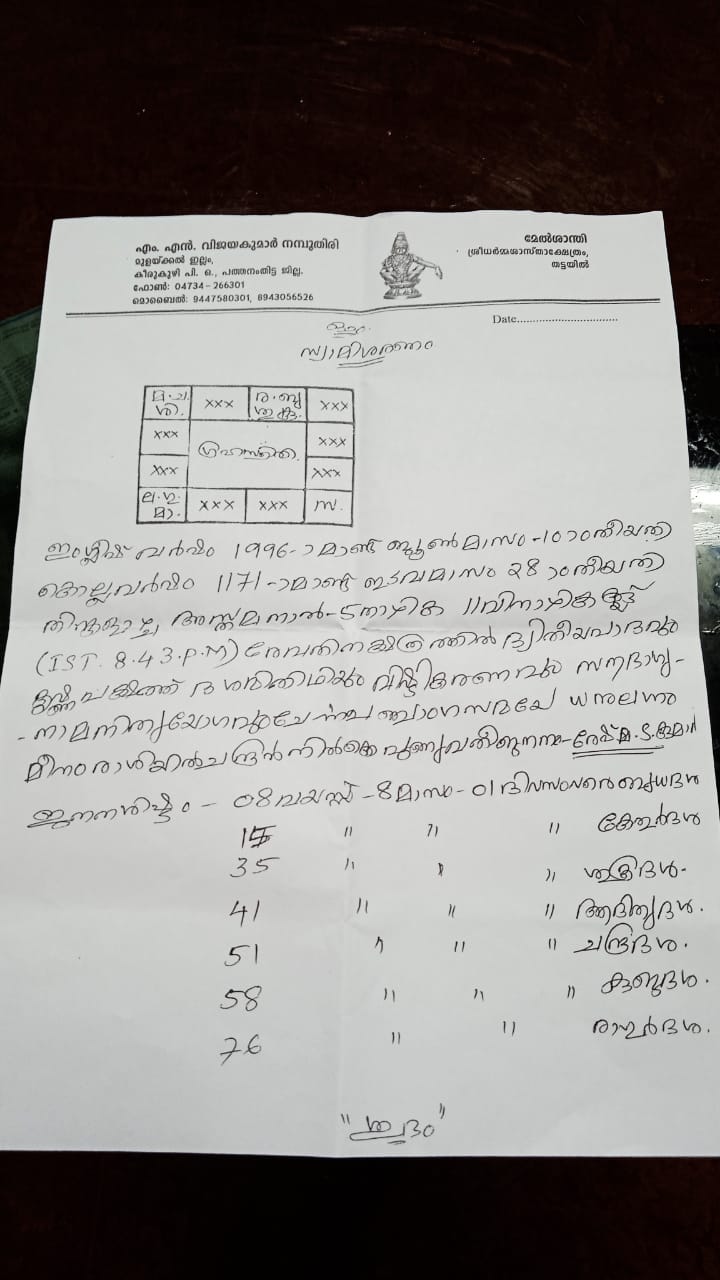 എം. എൻ. വിജയകുമാർ നമ്പൂതിരി
മുളയ്ക്കൽ ഇല്ലം,
കീരുകുഴി പി. ഒ., പത്തനംതിട്ട ജില്ല.
ഫോൺ: 04734 – 266301
മൊബൈൽ: 9447580301, 8943056526
മേൽശാന്തി
ശ്രീധർമ്മശാസ്താക്ഷേത്രം,
തട്ടയിൽ
Date..............................
സ്വാമിശരണം
മ.ച. ××× ര.ബു ×××
ശി. ശു.കു.
××× ഗ്രഹസ്ഥിതി. ×××
××× ×××
ല.ഗു. ××× ××× സ.
മാ.
ഇംഗ്ലീഷ് വർഷം 1996-ാമാണ്ട് ജൂൺ മാസം -10ാംതീയതി
കൊല്ലവർഷം 1171-ാമാണ്ട് ഇടവമാസം 28ാംതീയതി
തിങ്കളാഴ്ച അസ്തമനാൽ-5നാഴിക 11വിനാഴികക്ക്
(IST. 8.43.P.M) രേവതിനക്ഷത്രത്തിൽ ദ്വിതീയപാദവും
കൃഷ്ണപക്ഷത്ത് ദശമിതിഥിയും വിഷ്ടികരണവും സൗഭാഗ്യ-
-നാമനിത്യയോഗവുംചേർന്ന പഞ്ചാംഗസമയേ ധനുലഗ്നം
മീനം രാശിയിൽ ചന്ദ്രൻ നിൽക്കെ
ജനനശിഷ്ടം - 08വയസ്സ് -8മാസം-01ദിവസംവരെ ബുധദശ
15 " " " കേതുർദശ
35 " " " ശുക്രദശ-
41 " " " ആദിത്യദശ.
51 " " " ചന്ദ്രദശ.
58 " " " കുജദശ.
76 " " രാഹുർദശ.
"ശുഭം"